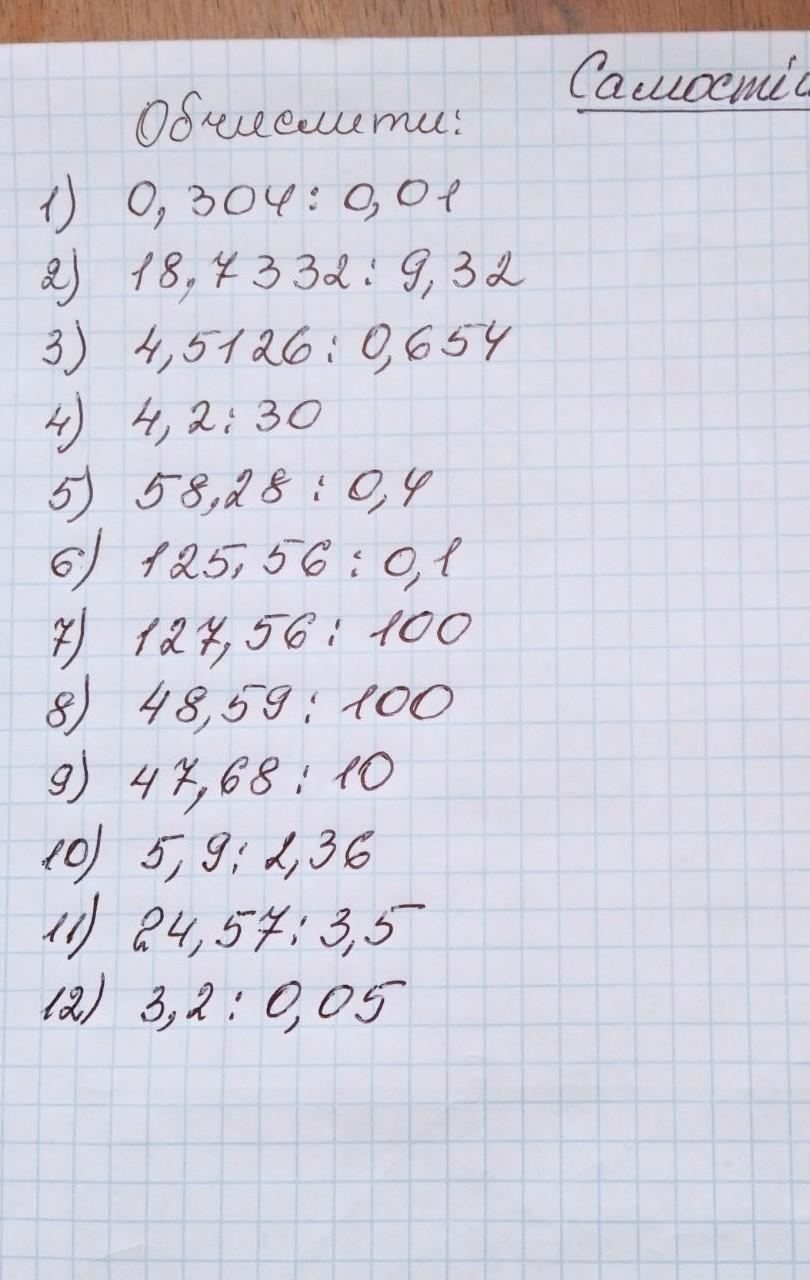 Самостій
Обчислити:
1) 0,304 : 0,01
2) 18,7332 : 9,32
3) 4,5126 : 0,654
4) 4,2 : 30
5) 58,28 : 0,4
6) 125,56 : 0,1
7) 127,56 : 100
8) 48,59 : 100
9) 47,68 : 10
10) 5,9 : 2,36
11) 24,57 : 3,5
12) 3,2 : 0,05